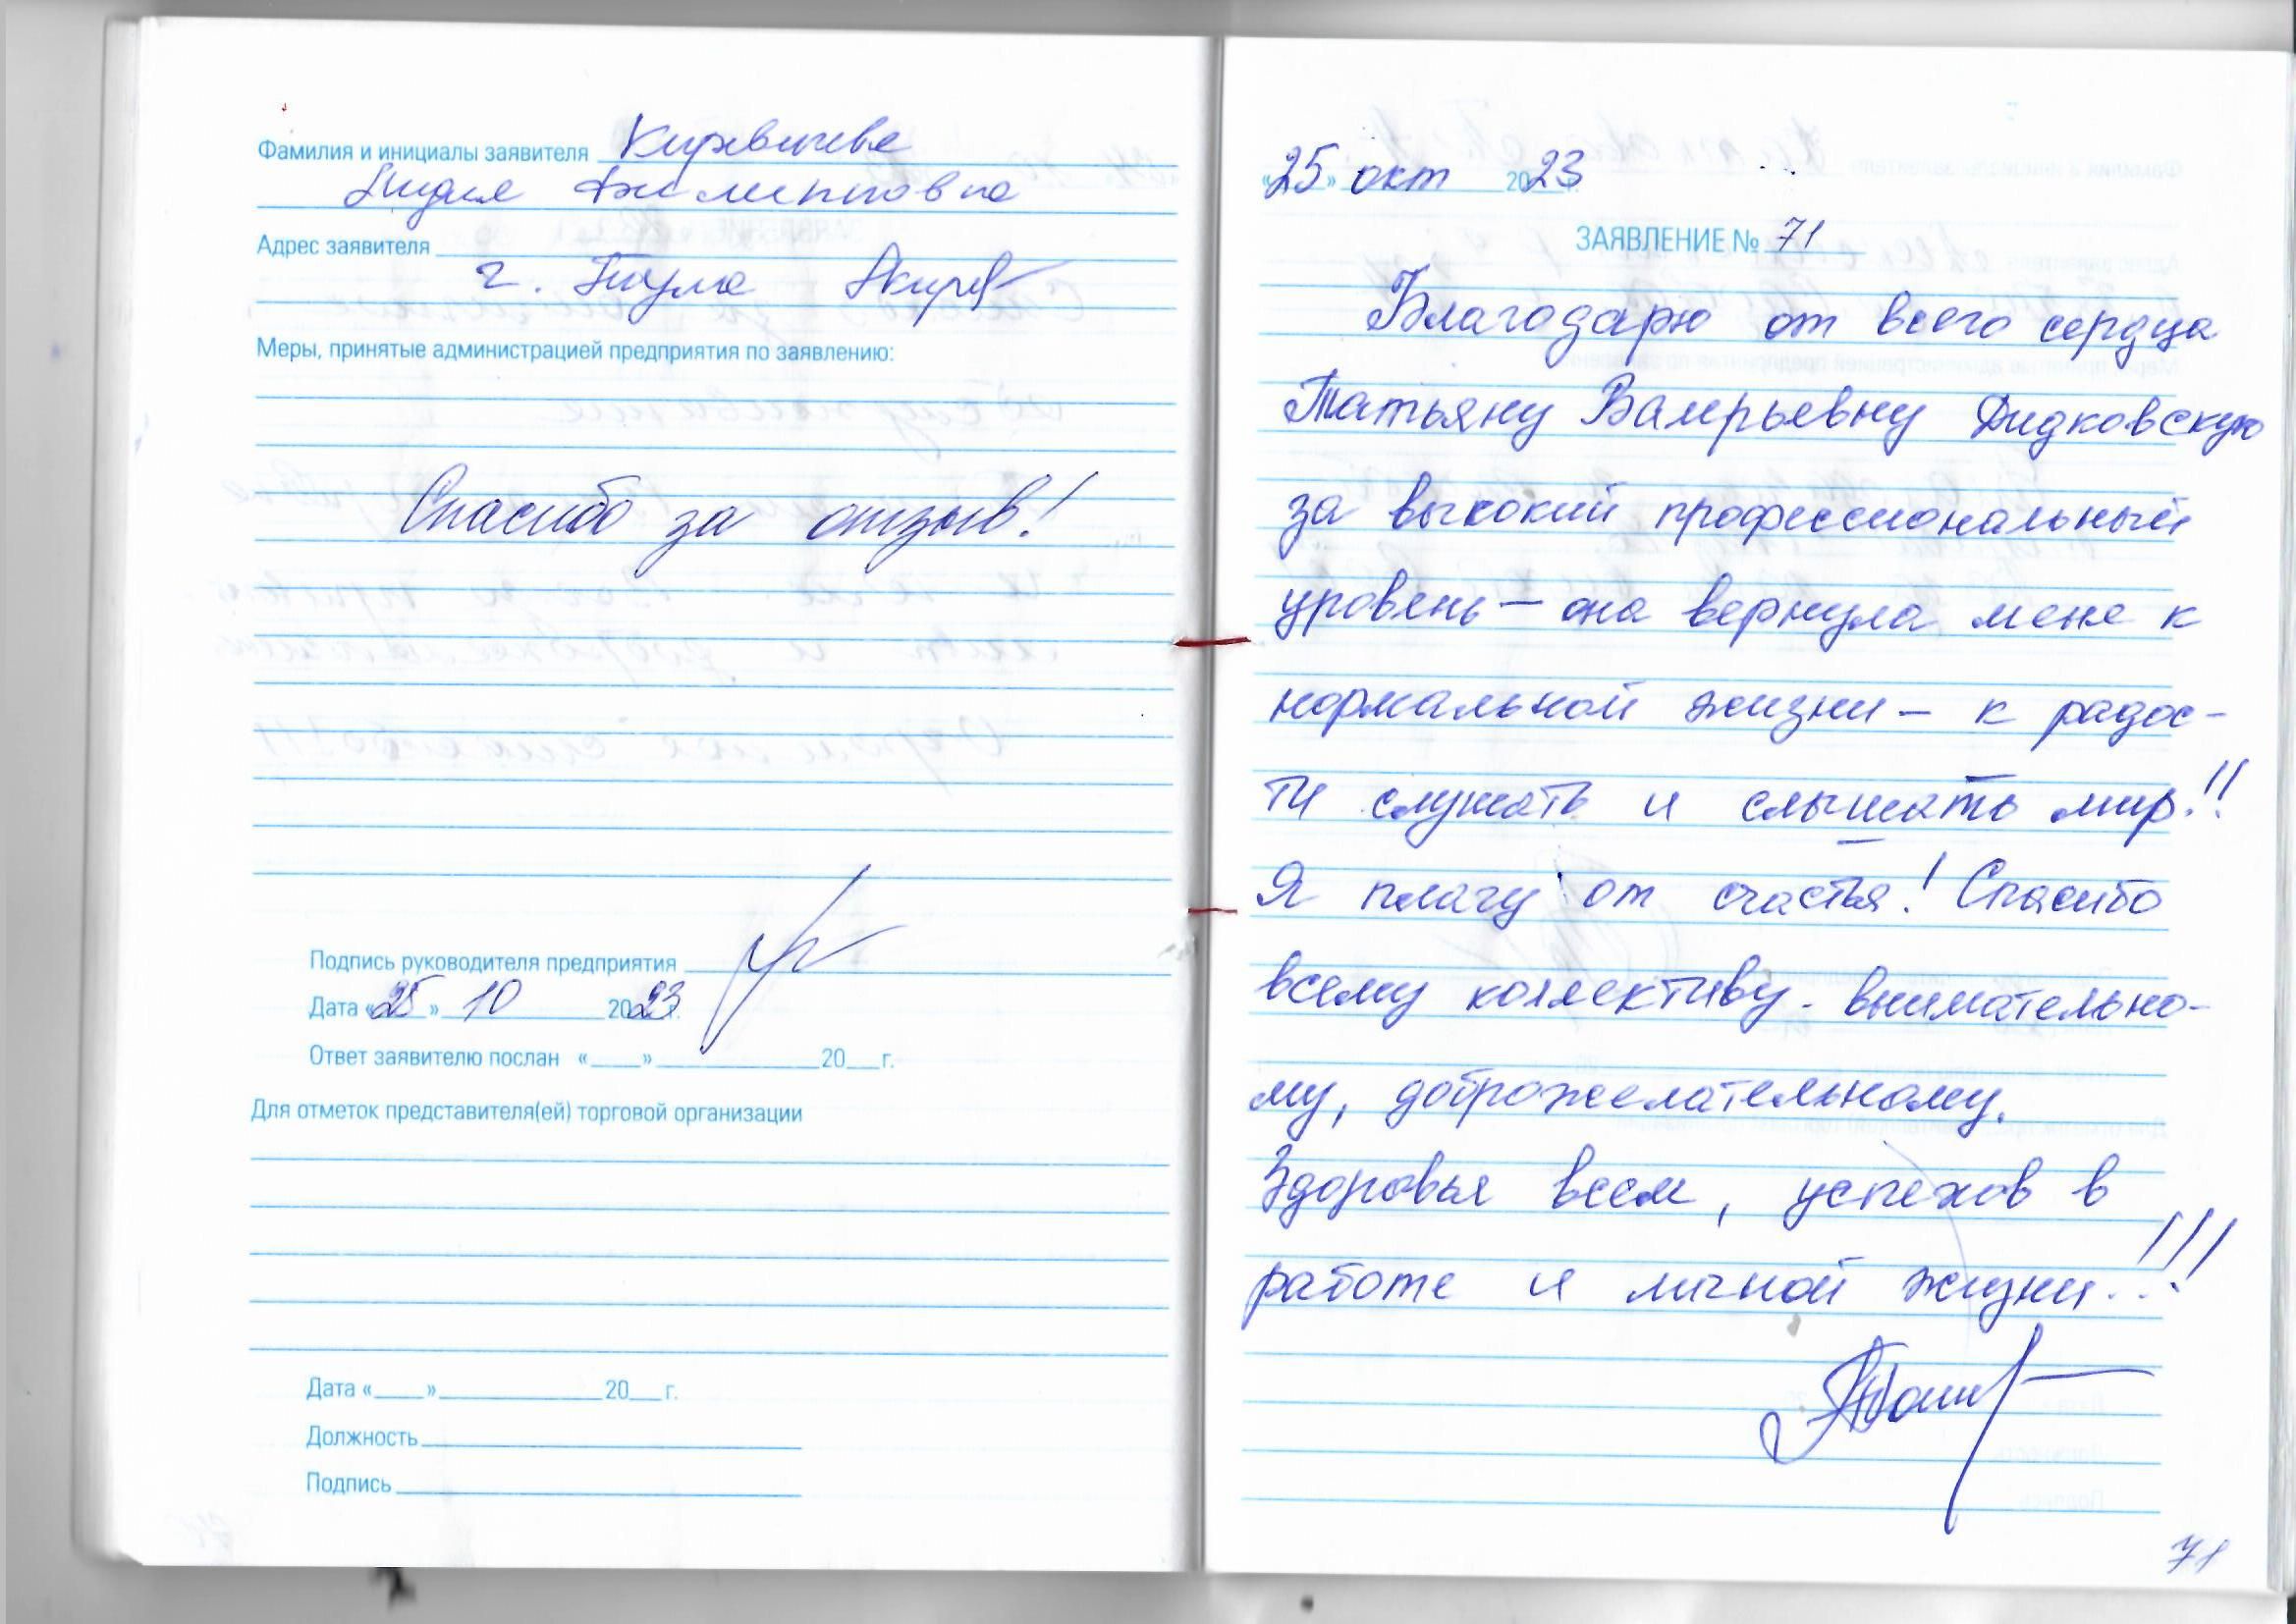 Фамилия и инициалы заявителя
Филипповна
Адрес заявителя
г. Тула
Меры, принятые администрацией предприятия по заявлению:
Спасибо за отзыв!
Подпись руководителя предприятия
Дата «25» 10 2023 г.
Ответ заявителю послан «___» ___ 20__г.
Для отметок представителя(ей) торговой организации
Дата «___» ___ 20__г.
Должность
Подпись
«25» окт 2023
ЗАЯВЛЕНИЕ № 71
Благодарю от всего сердца
Татьяну Валерьевну Дидковскую
за высокий профессиональный
уровень – она вернула меня к
нормальной жизни – к радос-
ти слушать и слышать мир!!
Я плачу от счастья! Спасибо
всему коллективу - внимательно-
му, доброжелательному.
Здоровья всем, успехов в
работе и личной жизни!!!
71